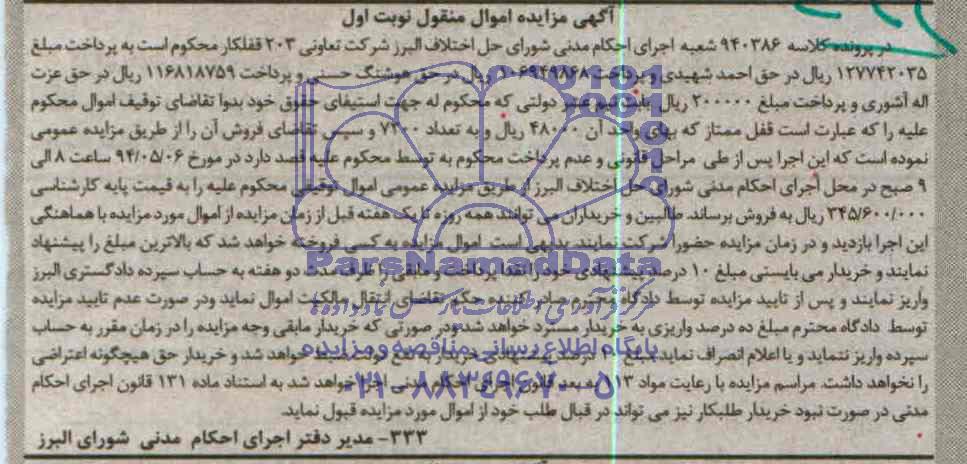 آگهی مزایده اموال منقول نوبت اول
در پرونده کلاسه ۹۴۰۳۸۶ شعبه اجرای احکام مدنی شورای حل اختلاف البرز شرکت تعاونی ۲۰۳ قفلکار محکوم است به پرداخت مبلغ
۱۲۷۷۴۲۰۳۵ ریال در حق احمد شهیدی و پرداخت ۱۰۶۹۴۹۸۶۸ ریال در حق هوشنگ حسنی و پرداخت ۱۱۶۸۱۸۷۵۹ ریال در حق عزت
اله آشوری و پرداخت مبلغ ۲۰۰۰۰۰ ریال بابت نیم عشر دولتی که محکوم له جهت استیفای حقوق خود بدوا تقاضای توقیف اموال محکوم
علیه را که عبارت است قفل ممتاز که بهای واحد آن ۴۸۰۰۰ ریال و به تعداد ۷۲۰۰ و سپس تقاضای فروش آن را از طریق مزایده عمومی
نموده است که این اجرا پس از طی مراحل قانونی و عدم پرداخت محکوم به توسط محکوم علیه قصد دارد در مورخ ۹۴/۰۵/۰۶ ساعت ۸ الی
۹ صبح در محل اجرای احکام مدنی شورای حل اختلاف البرز از طریق مزایده عمومی اموال توقیفی محکوم علیه را به قیمت پایه کارشناسی
۳۴۵/۶۰۰/۰۰۰ ریال به فروش برساند. طالبین و خریداران می توانند همه روزه تا یک هفته قبل از زمان مزایده از اموال مورد مزایده با هماهنگی
این اجرا بازدید و در زمان مزایده حضورا شرکت نمایند. بدیهی است اموال مزایده به کسی فروخته خواهد شد که بالاترین مبلغ را پیشنهاد
نمایند و خریدار می بایستی مبلغ ۱۰ درصد پیشنهادی خود را نقدا پرداخت و مابقی را ظرف مدت دو هفته به حساب سپرده دادگستری البرز
واریز نمایند و پس از تایید مزایده توسط دادگاه محترم صادر کننده حکم تقاضای انتقال مالکیت اموال نماید ودر صورت عدم تایید مزایده
توسط دادگاه محترم مبلغ ده درصد واریزی به خریدار مسترد خواهد شد ودر صورتی که خریدار مابقی وجه مزایده را در زمان مقرر به حساب
سپرده واریز ننماید و یا اعلام انصراف نماید مبلغ ۱۰ درصد پیشنهادی خریدار به نفع دولت ضبط خواهد شد و خریدار حق هیچگونه اعتراضی
را نخواهد داشت. مراسم مزایده با رعایت مواد ۵۱۳ به بعد قانون اجرای احکام مدنی اجرا خواهد شد به استناد ماده ۱۳۱ قانون اجرای احکام
مدنی در صورت نبود خریدار طلبکار نیز می تواند در قبال طلب خود از اموال مورد مزایده قبول نماید.
۳۳۳- مدیر دفتر اجرای احکام مدنی شورای البرز
ParsNamadData
پایگاه اطلاع رسانی مناقصه و مزایده
۰۲۱-۸۸۳۴۹۶۷۰